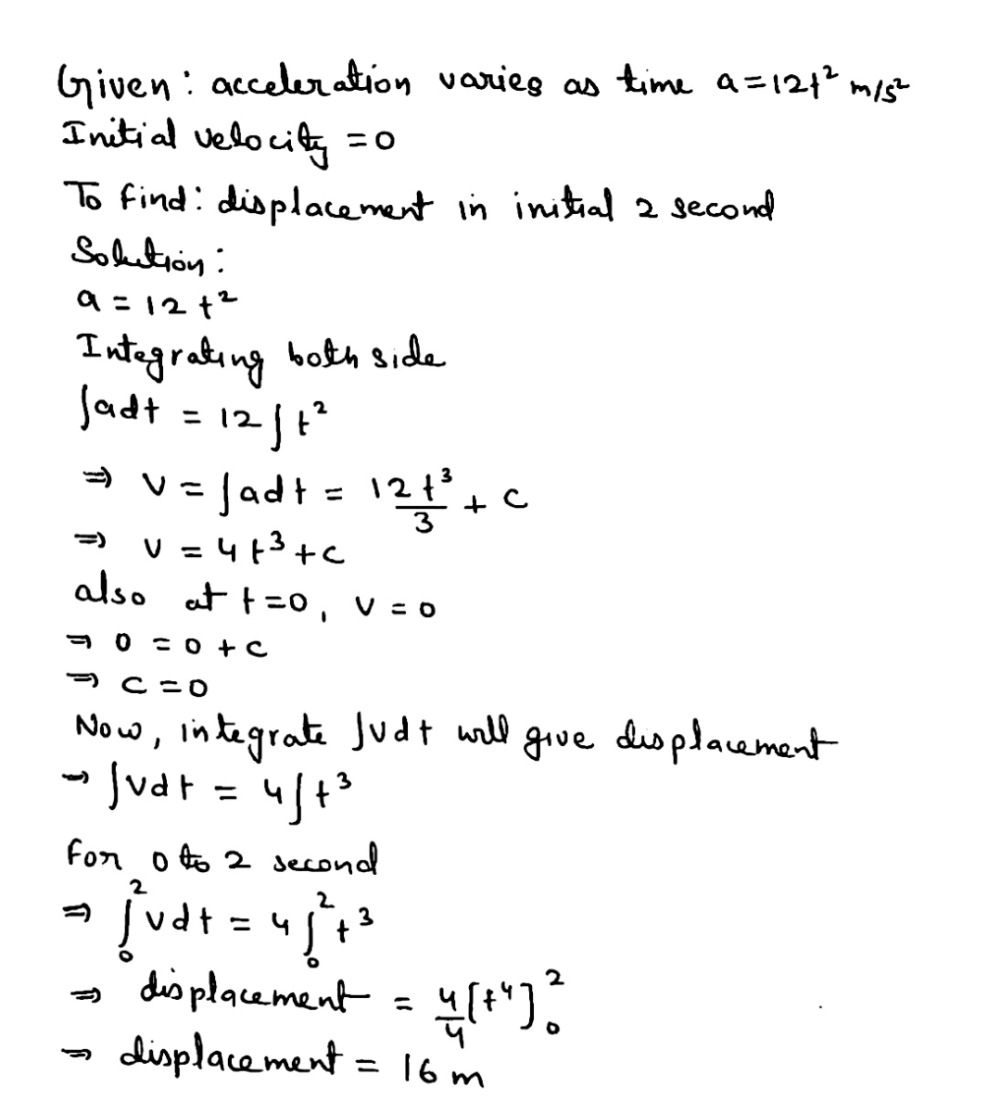 Given: acceleration varies as time a=12t² m/s²
Initial velocity = 0
To find: displacement in initial 2 second
Solution:
a = 12t²
Integrating both side
∫adt = 12∫t²
⇒ v = ∫adt = 12t³/3 + c
⇒ v = 4t³+c
also at t=0, v=0
⇒ 0 = 0 + c
⇒ c = 0
Now, integrate ∫vdt will give displacement
→ ∫vdt = 4∫t³
For 0 to 2 second
⇒ ∫₀²vdt = 4∫₀²t³
⇒ displacement = 4/4[t⁴]₀²
⇒ displacement = 16 m